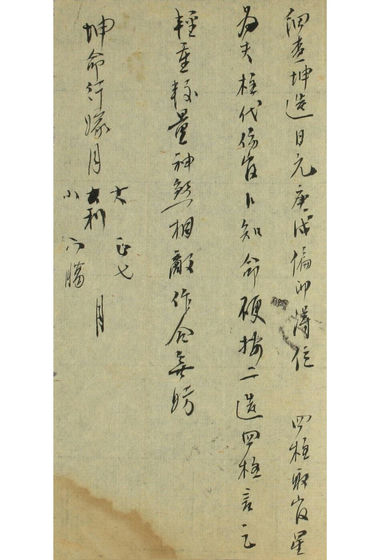 細查坤造日元庚戌偏印得位 四柱取官星
為夫柱代傷官卜知命硬按二造四柱言之
輕重較量神煞相敵作合無妨
坤命行嫁月 大利 正七 月
小